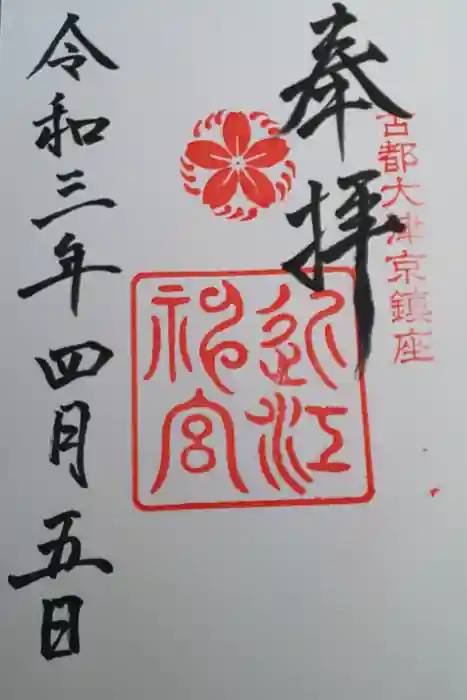 奉拝
古都大津京鎮座
近江
神宮
令和三年四月五日